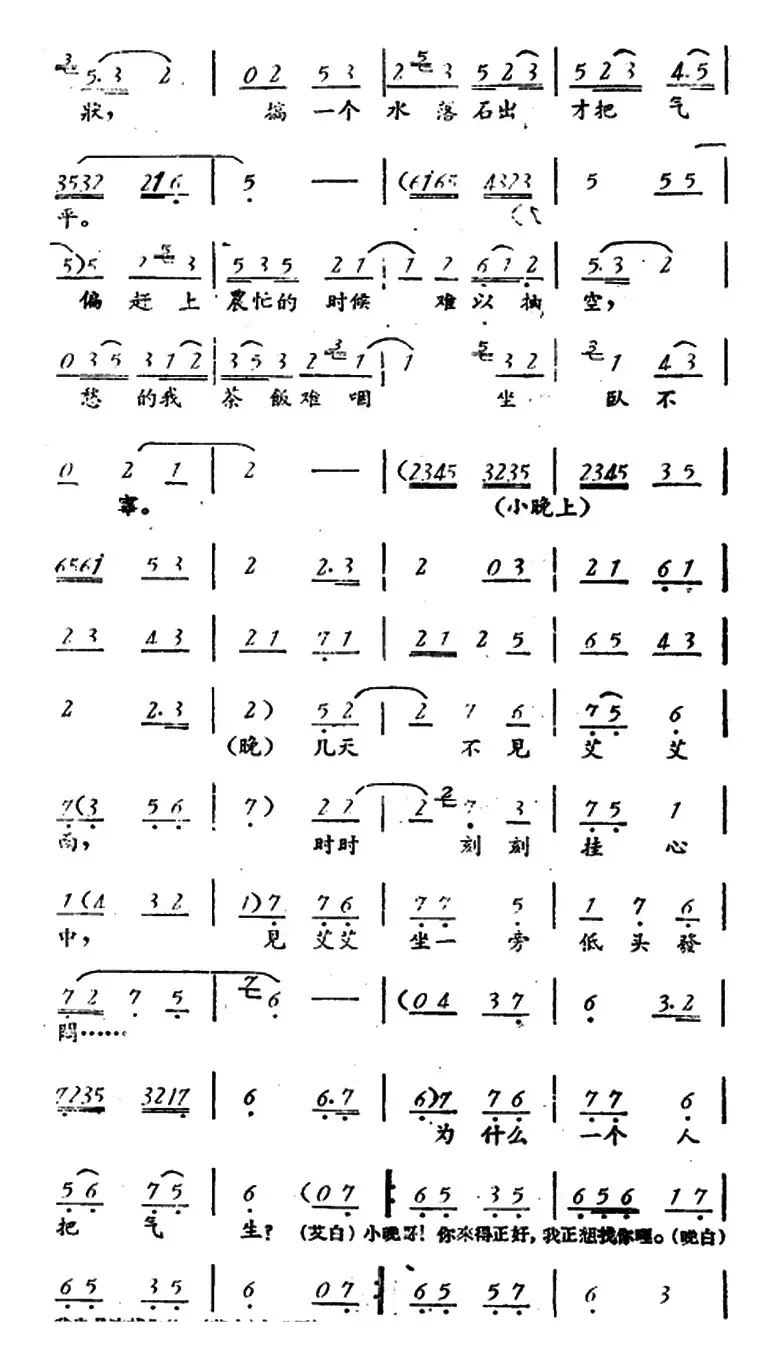 3 5.3 2 | 0 2 5 3 | 2 5 3 5 2 3 | 5 2 3 4.5 |
狀, 搞一个 水落石出 才把 气
3532 216 | 5 — | (6i65 4323 | 5 5 5 |
平。
5)5 2 5 3 | 5 3 5 2 1 | 1 2 6 1 2 | 5.3 2 |
偏赶上 農忙的时候 难以抽空,
0 3 5 3 1 2 | 3 5 3 2 3 1 | 1 5 3 2 | 3 1 4 3 |
愁的我 茶飯难咽 坐 臥不
0 2 1 | 2 — | (2345 3235 | 2345 3 5 |
寧。 (小晚上)
656i 5 3 | 2 2.3 | 2 0 3 | 2 1 6 1 |
2 3 4 3 | 2 1 7 1 | 2 1 2 5 | 6 5 4 3 |
2 2.3 | 2) 5 2 | 2 7 6 | 7 5 6 |
(晚) 几天 不見 艾艾
7(3 5 6 | 7) 2 2 | 2 2 7 3 | 7 5 1 |
面, 时时 刻刻 挂心
1(4 3 2 | 1)7 7 6 | 7 7 5 | 1 7 6 |
中, 見艾艾 坐一旁 低头發
7 2 7 5 | 7 6 — | (0 4 3 7 | 6 3.2 |
悶……
7235 3217 | 6 6.7 | 6)7 7 6 | 7 7 6 |
为什么 一个人
5 6 7 5 | 6 (0 7 : 6 5 3 5 | 6 5 6 1 7 |
把 气 生? (艾白) 小晚呀! 你来得正好, 我正想找你哩。(晚白)
6 5 3 5 | 6 0 7 : 6 5 5 7 | 6 3 |